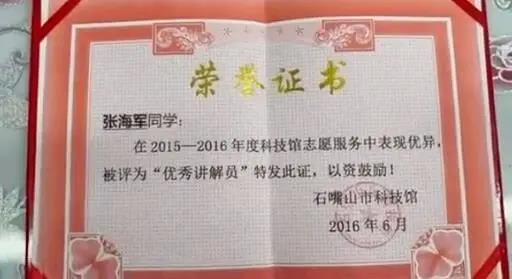 荣誉证书
张海军同学:
在2015—2016年度科技馆志愿服务中表现优异,
被评为“优秀讲解员”特发此证,以资鼓励!
石嘴山市科技馆
2016年6月